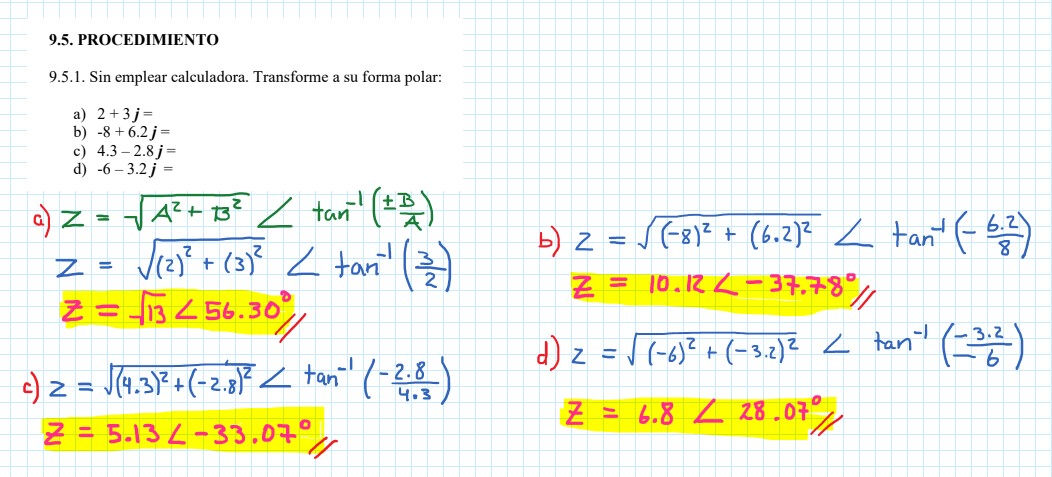 9.5. PROCEDIMIENTO
9.5.1. Sin emplear calculadora. Transforme a su forma polar:
a) 2 + 3 j =
b) -8 + 6.2 j =
c) 4.3 – 2.8 j =
d) -6 – 3.2 j =
a) Z = √(A² + B²) ∠ tan⁻¹ (±B/A)
Z = √((2)² + (3)²) ∠ tan⁻¹ (3/2)
Z = √13 ∠ 56.30° //
c) Z = √((4.3)² + (-2.8)²) ∠ tan⁻¹ (-2.8/4.3)
Z = 5.13 ∠ -33.07° //
b) Z = √((-8)² + (6.2)²) ∠ tan⁻¹ (- 6.2/8)
Z = 10.12 ∠ -37.78° //
d) Z = √((-6)² + (-3.2)²) ∠ tan⁻¹ (-3.2/-6)
Z = 6.8 ∠ 28.07° //